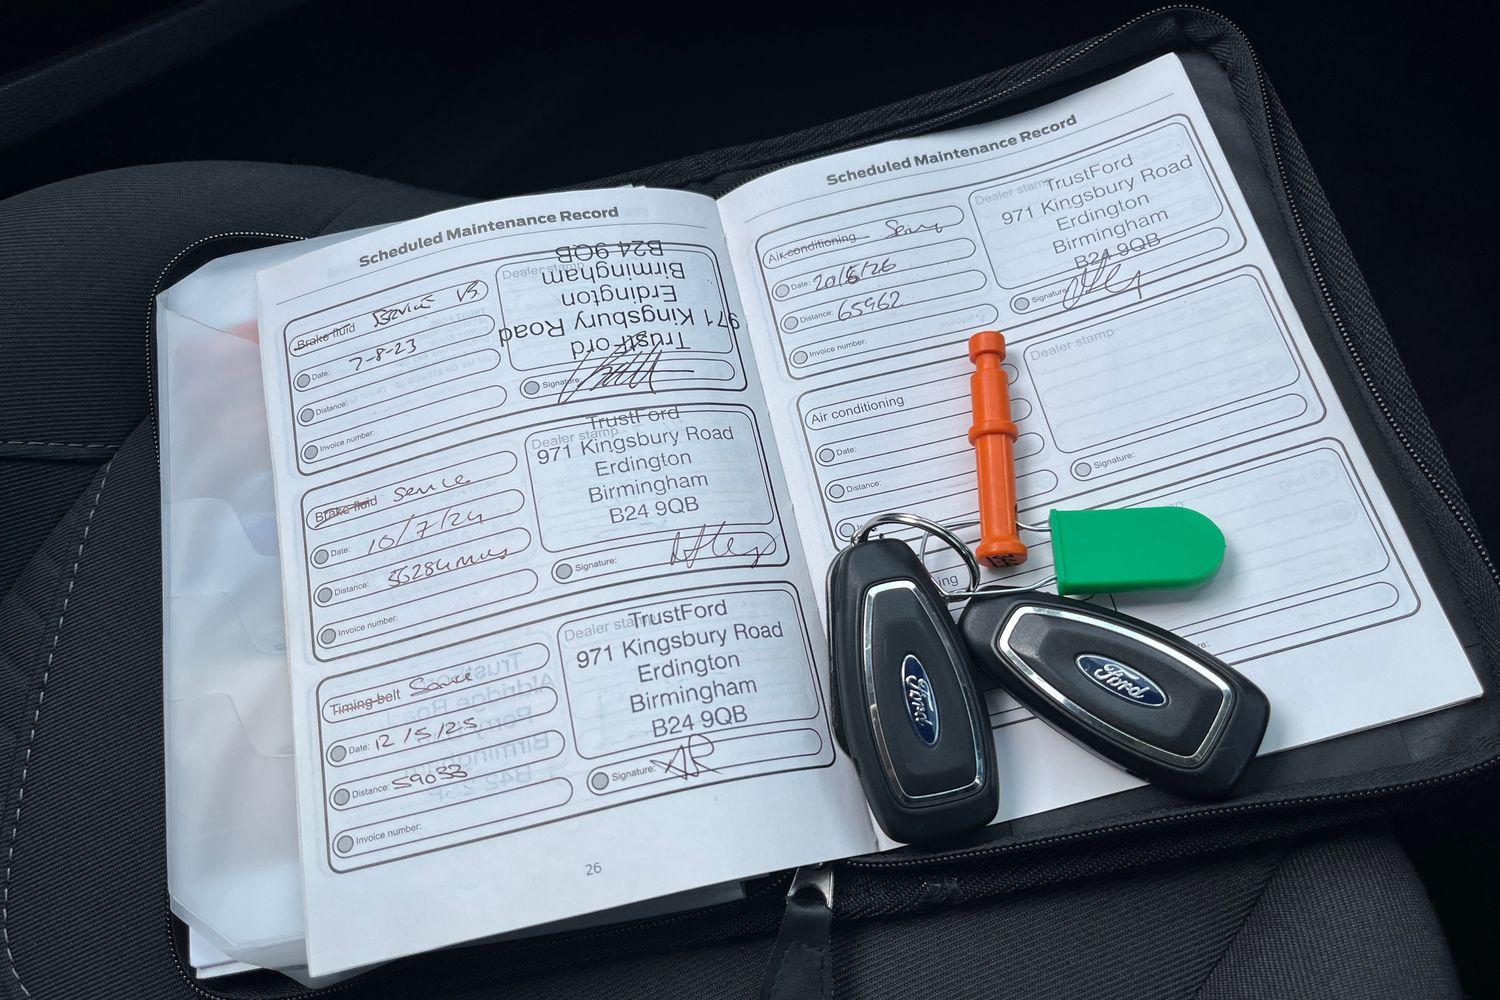 Scheduled Maintenance Record
Brake fluid Service
Date: 7-8-23
Distance:
Invoice number:
Dealer stamp
TrustFord
971 Kingsbury Road
Erdington
Birmingham
B24 9QB
Signature:
Brake fluid Service
Date: 10/7/24
Distance: 55284 miles
Invoice number:
Dealer stamp
TrustFord
971 Kingsbury Road
Erdington
Birmingham
B24 9QB
Signature:
Timing belt Service
Date: 12/5/25
Distance: 59033
Invoice number:
Dealer stamp
TrustFord
971 Kingsbury Road
Erdington
Birmingham
B24 9QB
Signature:
26
Scheduled Maintenance Record
Air conditioning Service
Date:
Distance: 65962
Invoice number:
Dealer stamp
TrustFord
971 Kingsbury Road
Erdington
Birmingham
B24 9QB
Signature:
Air conditioning
Date:
Distance:
Dealer stamp
Signature:
Ford
Ford